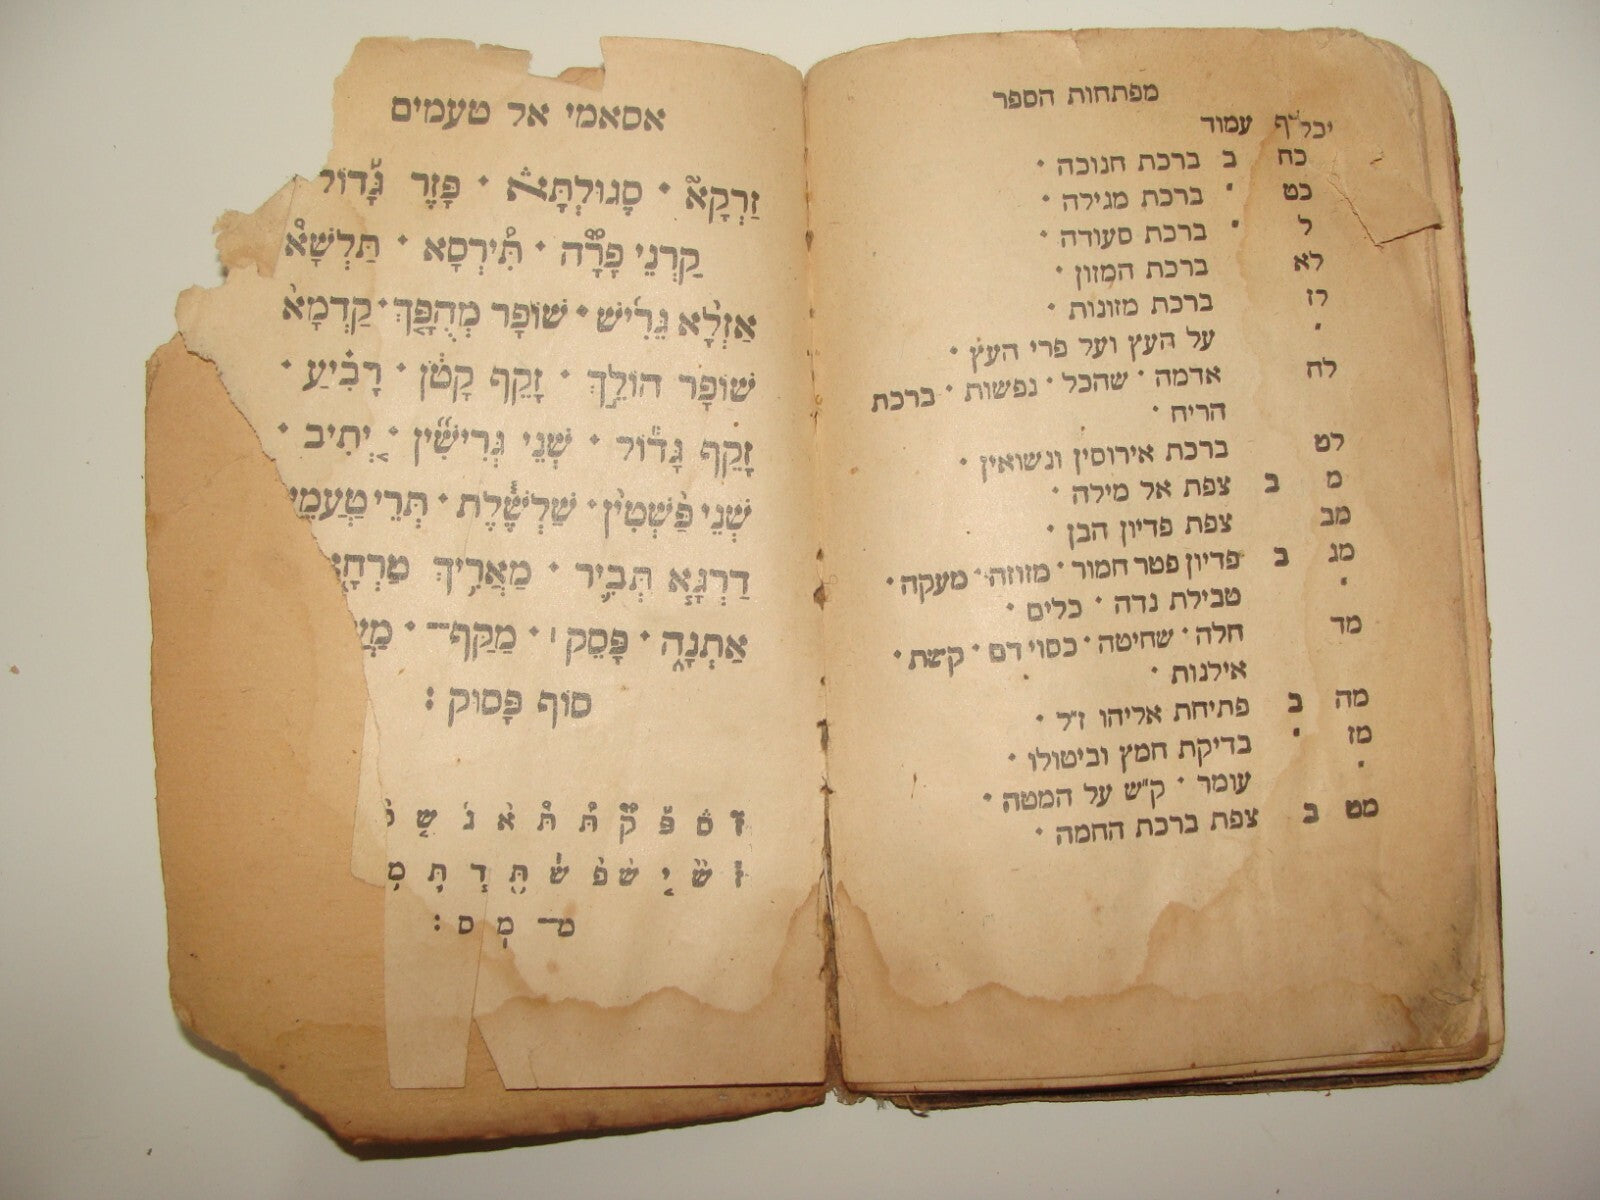 מפתחות הספר
יכל״ף עמוד
כח ב ברכת חנוכה ·
כט ' ברכת מגילה ·
ל ' ברכת סעודה ·
לא ברכת המזון ·
לז ברכת מזונות ·
' על העץ ועל פרי העץ ·
לח אדמה · שהכל · נפשות · ברכת
הריח ·
לט ברכת אירוסין ונשואין ·
מ ב צפת אל מילה ·
מב צפת פדיון הבן ·
מג ב פדיון פטר חמור · מזוזה · מעקה ·
' טבילת נדה · כלים ·
מד חלה · שחיטה · כסוי דם · קשת ·
אילנות ·
מה ב פתיחת אליהו ז״ל ·
מז ' בדיקת חמץ וביטולו ·
' עומר · ק״ש על המטה ·
מט ב צפת ברכת החמה ·
אסאמי אל טעמים
זַרְקָא֮ · סְגוּלְתָּא֒ · פָּזֶר גָּדוֹל
קַרְנֵי פָרָ֟ה · תִּ֠ירְסָא · תַּלְשָׁא֩
אַזְלָ֨א גֵּרִ֜ישׁ · שׁוֹפָר מְהֻפָּ֤ךְ · קַדְמָא֨
שׁוֹפָר הוֹלֵ֣ךְ · זָקֵף קָטֹ֔ן · רָבִ֗יעַ ·
זָקֵף גָּד֕וֹל · שְׁנֵי גְּרִישִׁ֞ין · יְ֚תִיב ·
שְׁנֵי פַּ֨שְׁטִין֙ · שַׁלְשֶׁ֓לֶת · תְּרֵי טַעֲמֵי
דַּרְגָּ֧א תְּבִ֛יר · מַאֲרִ֥יךְ טַרְחָ֖
אַתְנָ֑ה · פָּסֵק׀ · מַקַּף־ · מַ
סוֹף פָּסוּק :
ז ס פ ק ת ת א ג ש
ז ש י ש פ ש ת ד ת מ
מ־ מ ס :